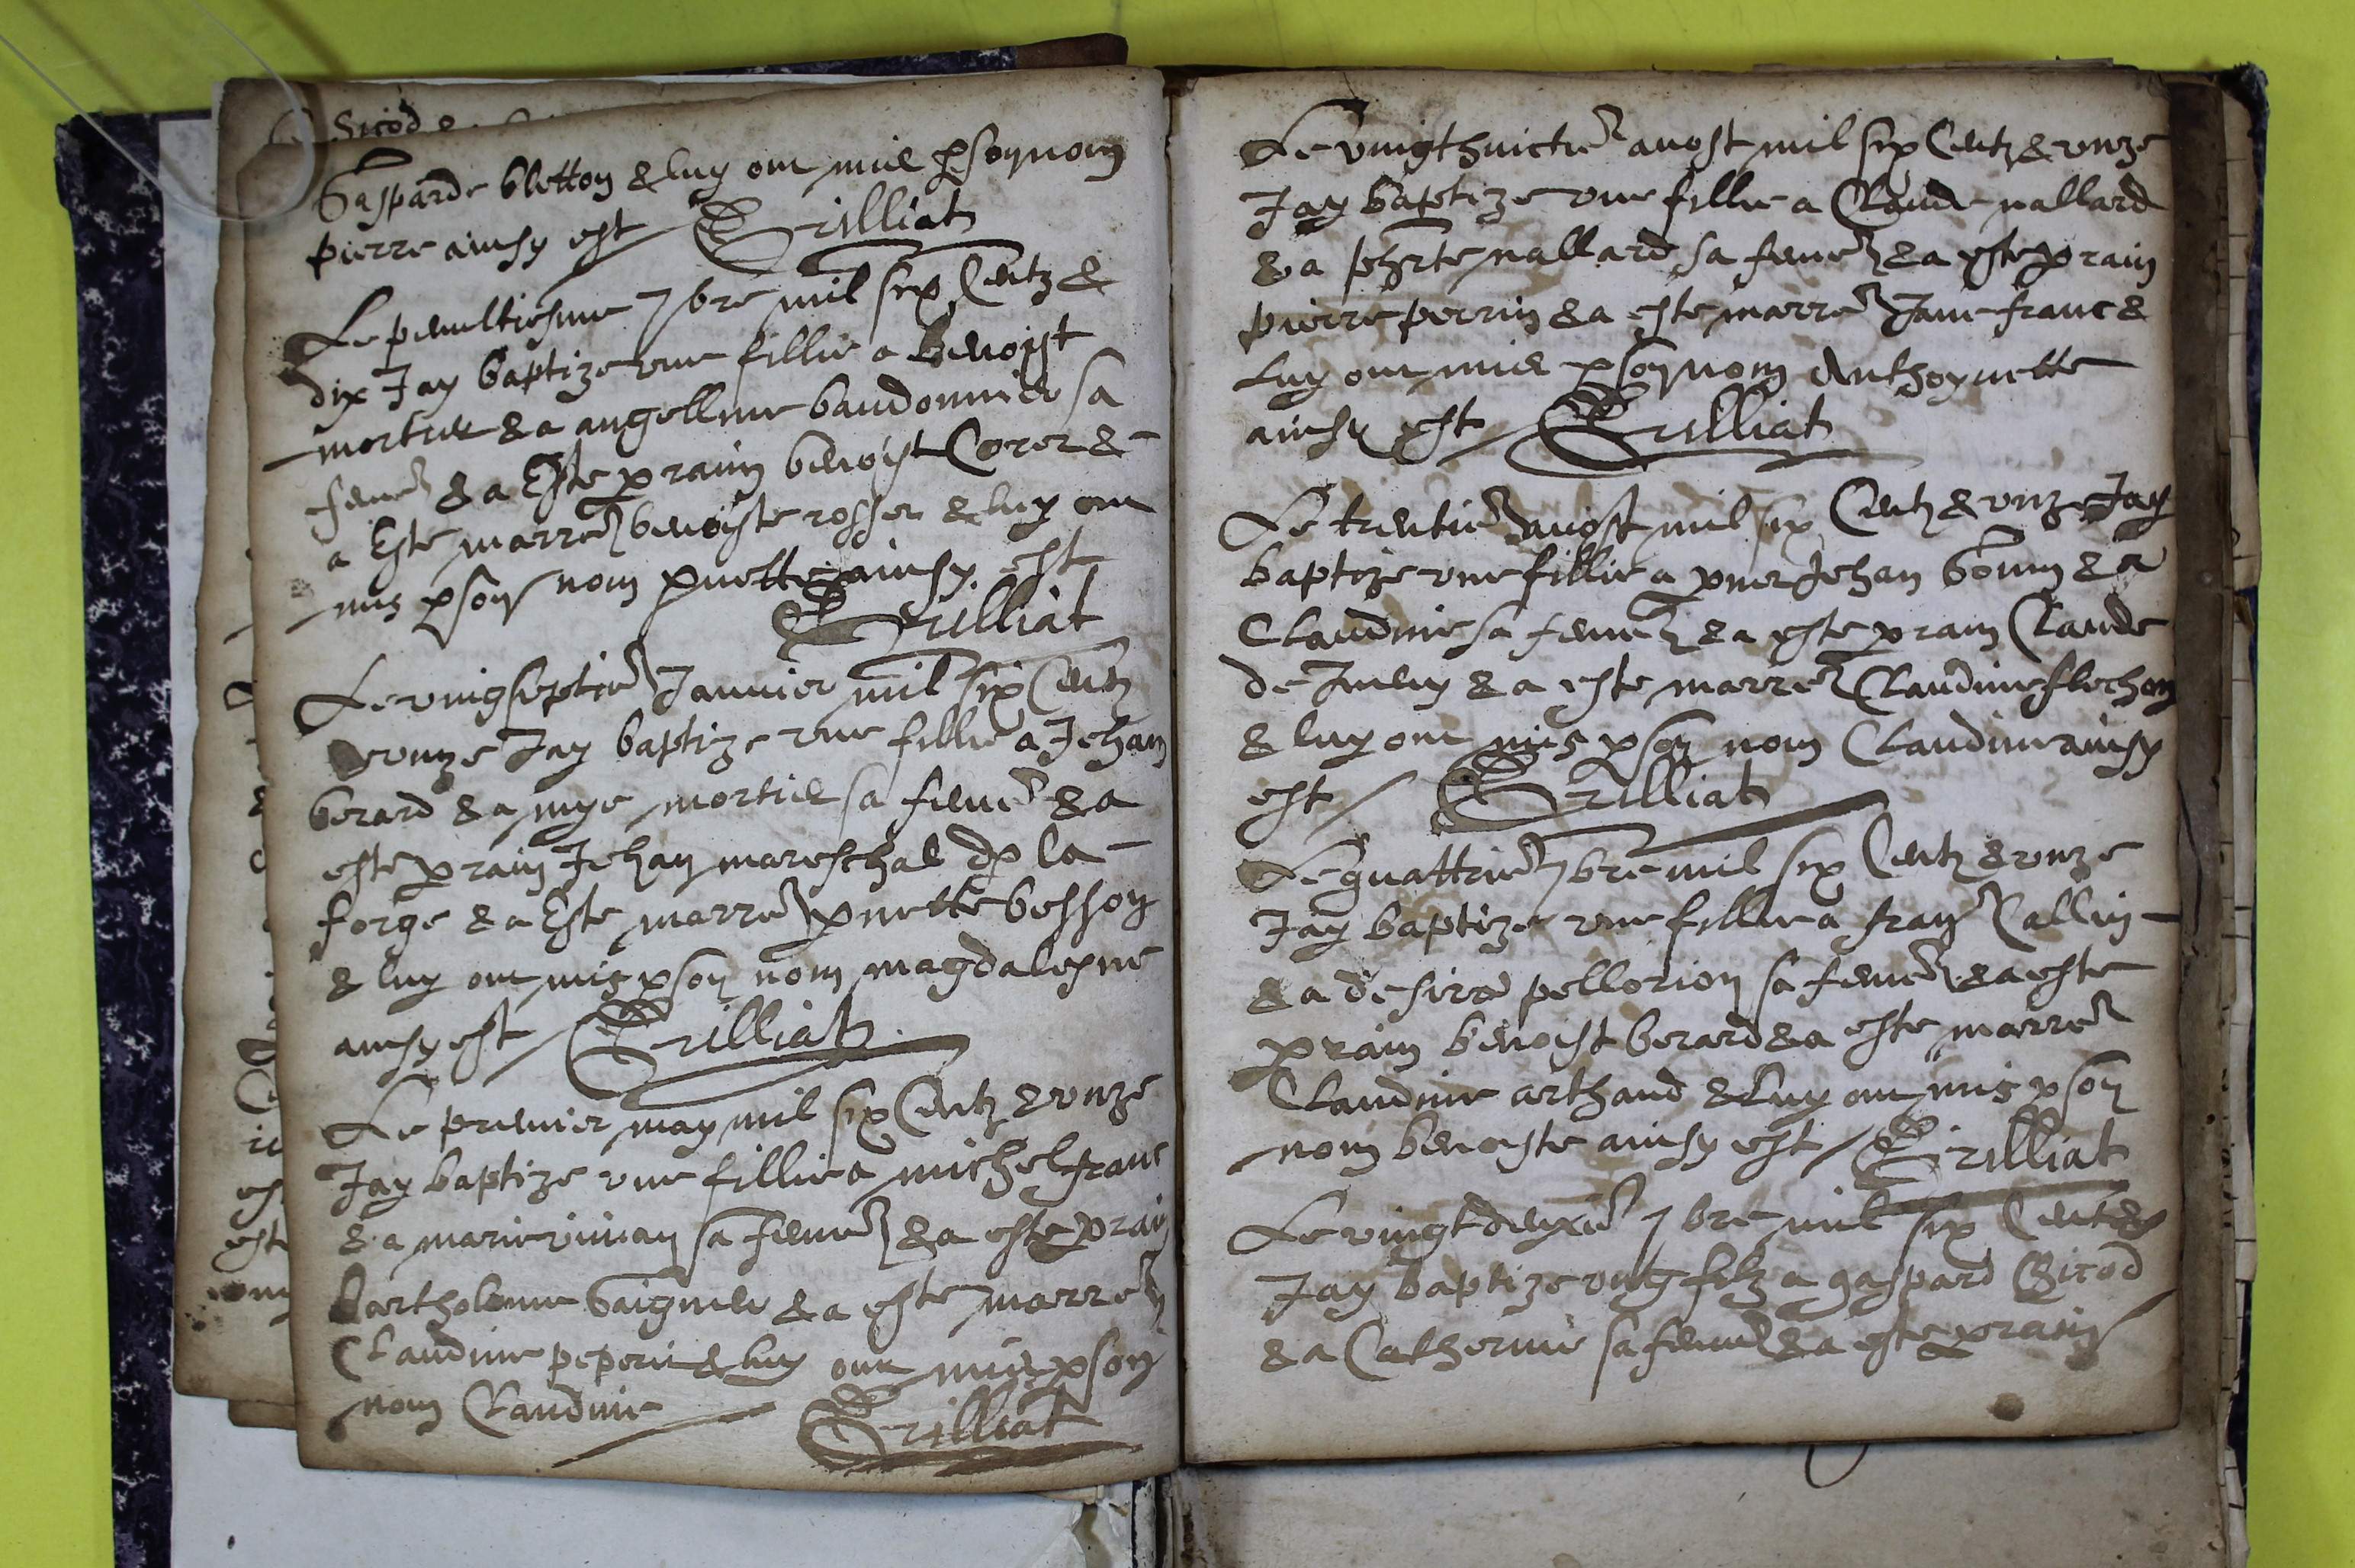 Gasparde bletton & luy ont mis p son nom
pierre ainsy est Grilliat
Le penultiesme 7bre mil six Centz &
dix Jay baptize une fillie a benoist
mortier & a angelline baudonnier sa
feme & a Este prain benoist Corer &
a Este marre benoiste rosser & luy ont
mis p son nom pnette ainsy est
Grilliat
Le vingseptie Januier mil six Centz
& vnze Jay baptize vne fillie a Jehan
berard & a mye mortier sa feme & a
este prain Jehan mareschal dp la
forge & a Este marre pnette besson
& luy ont mis p son nom magdaleyne
ainsy est Grilliat
Le premier may mil six Centz & vnze
Jay baptize vne fillie a michel franc
& a marie vivian sa feme & a este prain
bartholome Gaignier & a este marre
Claudine peperie & luy ont mis p son
nom Claudine Grilliat
Le vingthuictie auost mil six Centz & vnze
Jay baptize vne fillie a Claude nallard
& a nallard sa feme & a este prain
pierre perrin & a este marre Jane franc &
Luy ont mis p son nom Anthoynette
ainsy est Grilliat
Le trentie auost mil six Centz & vnze Jay
baptize vne fillie a Jehan Gonin & a
Claudine sa feme & a este prain Claude
de & a este marre Claudine flechon
& luy ont mis p son nom Claudine ainsy
est Grilliat
Le quattrie 7bre mil six Centz & vnze
Jay baptize vne fillie a frans Callin
& a desire pellorion sa feme & a este
prain benoist berard & a este marre
Claudine arthaud & luy ont mis p son
nom benoiste ainsy est Grilliat
Le vingt deuxie 7bre mil six Centz
Jay baptize vng filz a gaspard Gicod
& a Catherine sa feme & a este prain